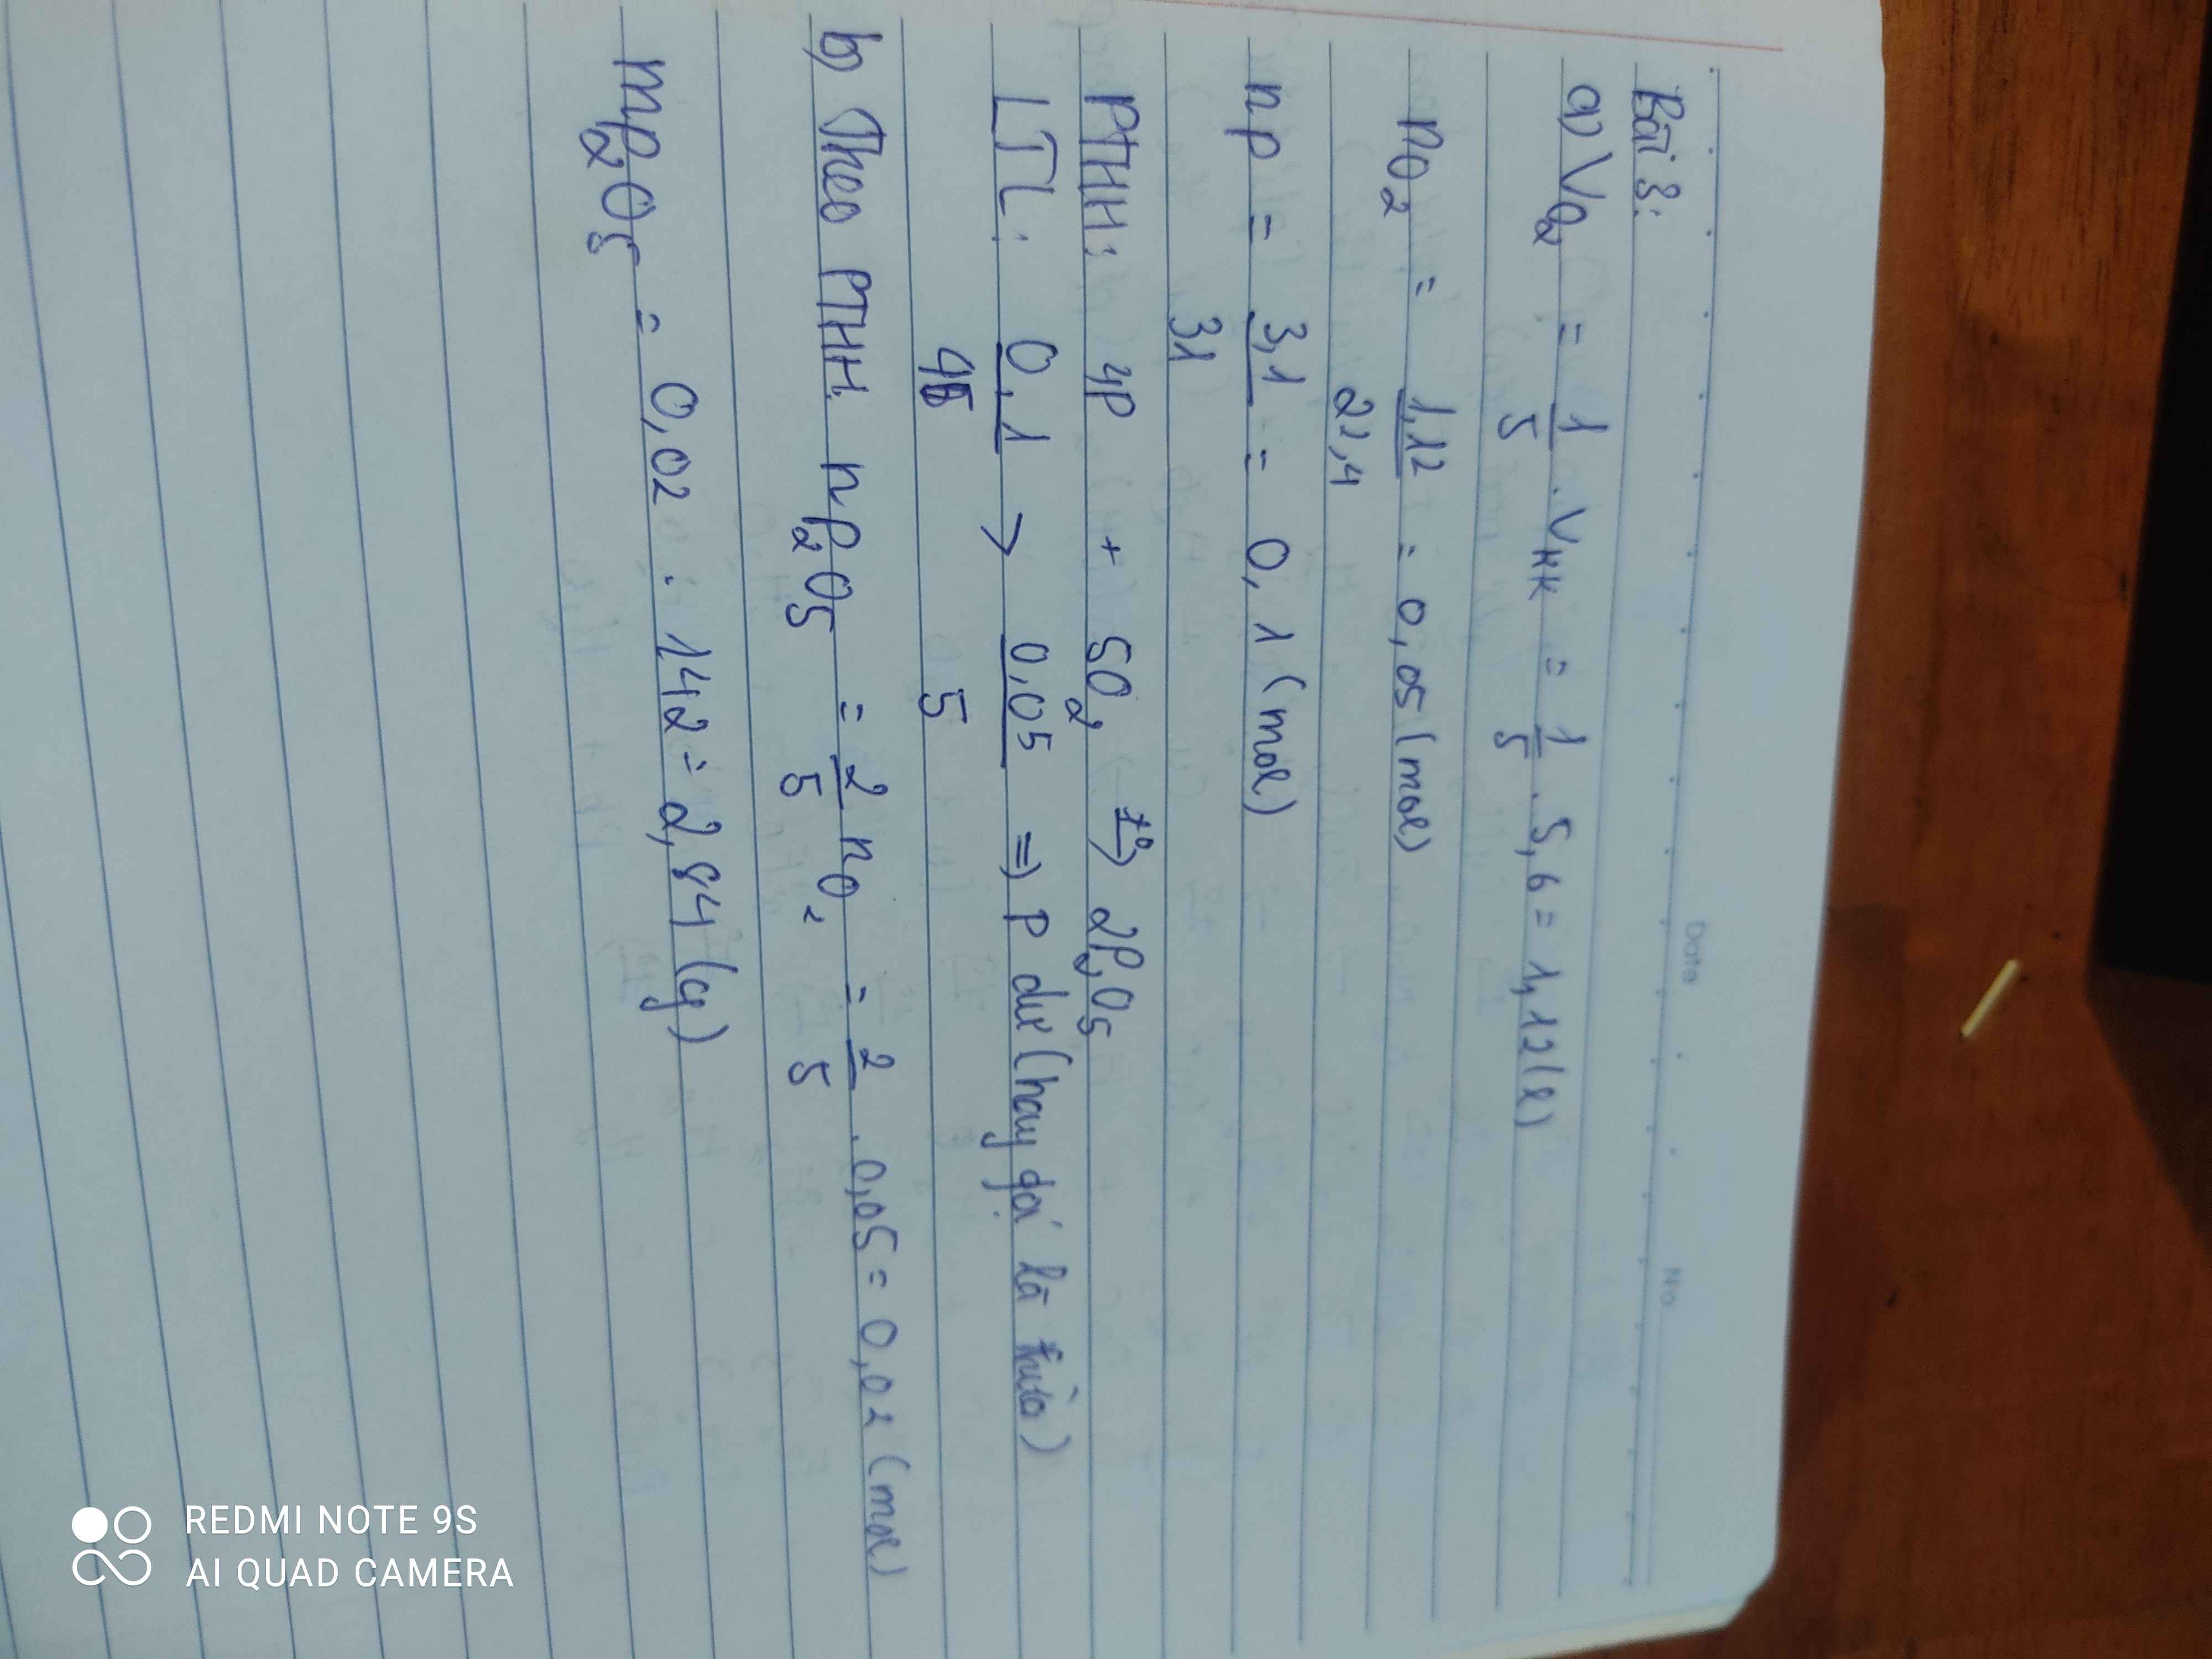 Date
No
Bài 3:
a) VO2 = 1/5 . VKK = 1/5 . 5,6 = 1,12 (l)
nO2 = 1,12/22,4 = 0,05 (mol)
nP = 3,1/31 = 0,1 (mol)
PTHH: 4P + 5O2 -t°-> 2P2O5
LTL: 0,1/4 > 0,05/5 => P dư (hay gọi là thừa)
b) Theo PTHH: nP2O5 = 2/5 nO2 = 2/5 . 0,05 = 0,02 (mol)
mP2O5 = 0,02 . 142 = 2,84 (g)
REDMI NOTE 9S
AI QUAD CAMERA